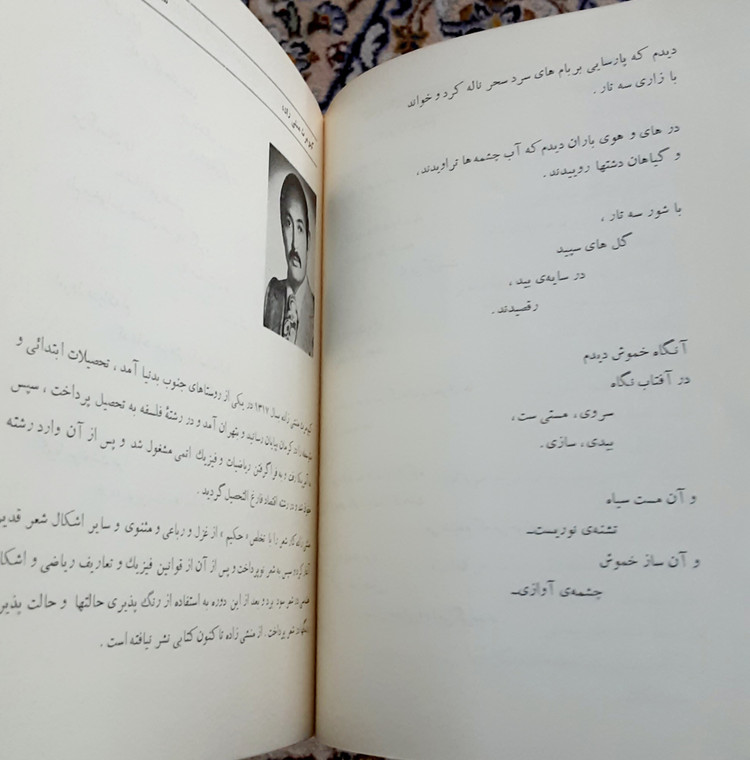 دیدم که پارسایی بربام های سرد سحر ناله کرد و خواند
با زاری سه تار .
در های و هوی باران دیدم که آب چشمه ها تراویدند،
و گیاهان دشتها روییدند .
با شور سه تار ،
گل های سپید
در سایه‌ی بید ،
رقصیدند .
آنگاه خموش دیدم
در آفتاب نگاه
سروی، مستی ست،
بیدی، سازی .
و آن مست سیاه
تشنه‌ی نوریست
و آن ساز خموش
چشمه‌ی آوازی
زاده سال ۱۳۱۷ در یکی از روستاهای جنوب بدنیا آمد ، تحصیلات ابتدائی و
را در کرمان بپایان رسانید و بتهران آمد و در رشتهٔ فلسفه به تحصیل پرداخت ، سپس
رفت و به فراگرفتن ریاضیات و فیزیك اتمی مشغول شد و پس از آن وارد رشته
و در رشته اقتصاد فارغ التحصیل گردید .
کار شعر را با تخلص « حکیم » از غزل و رباعی و مثنوی و سایر اشکال شعر
سپس به شعر نو پرداخت و پس از آن از قوانین فیزیك و تعاریف ریاضی و
در شعر سود برد و بعد از این دوره به استفاده از رنگ پذیری حالتها و حالت پذیری
در شعر پرداخت . از منشی زاده تا کنون کتابی نشر نیافته است .